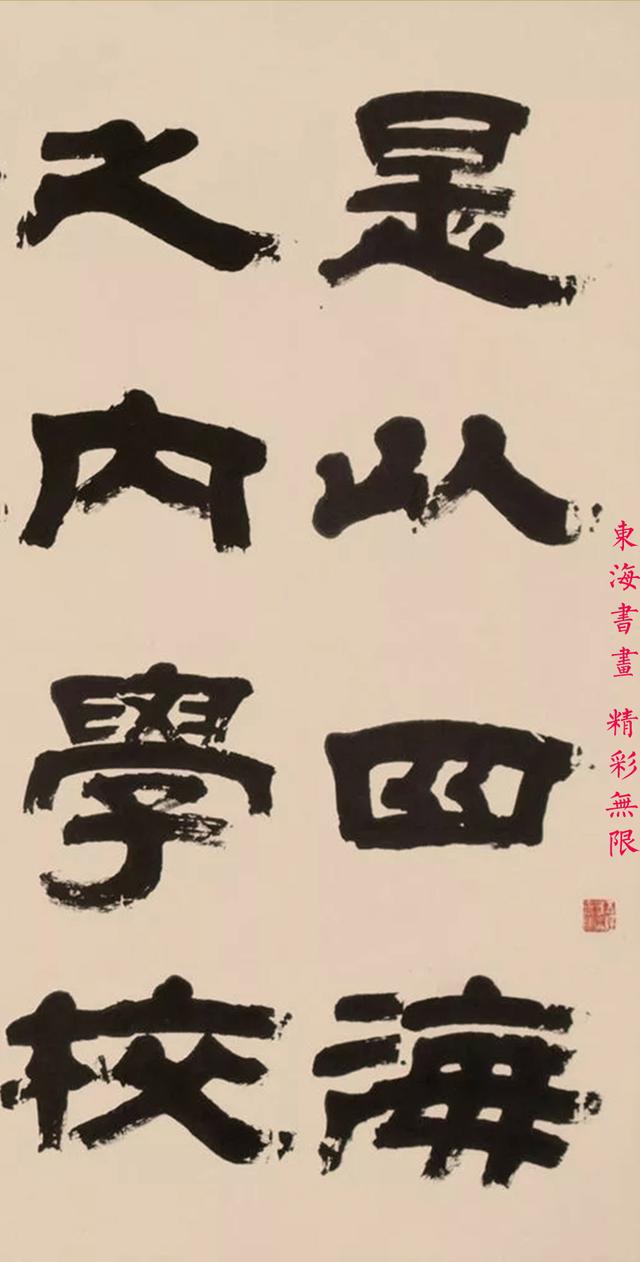 是以四海
之内學校
東海書畫 精彩無限